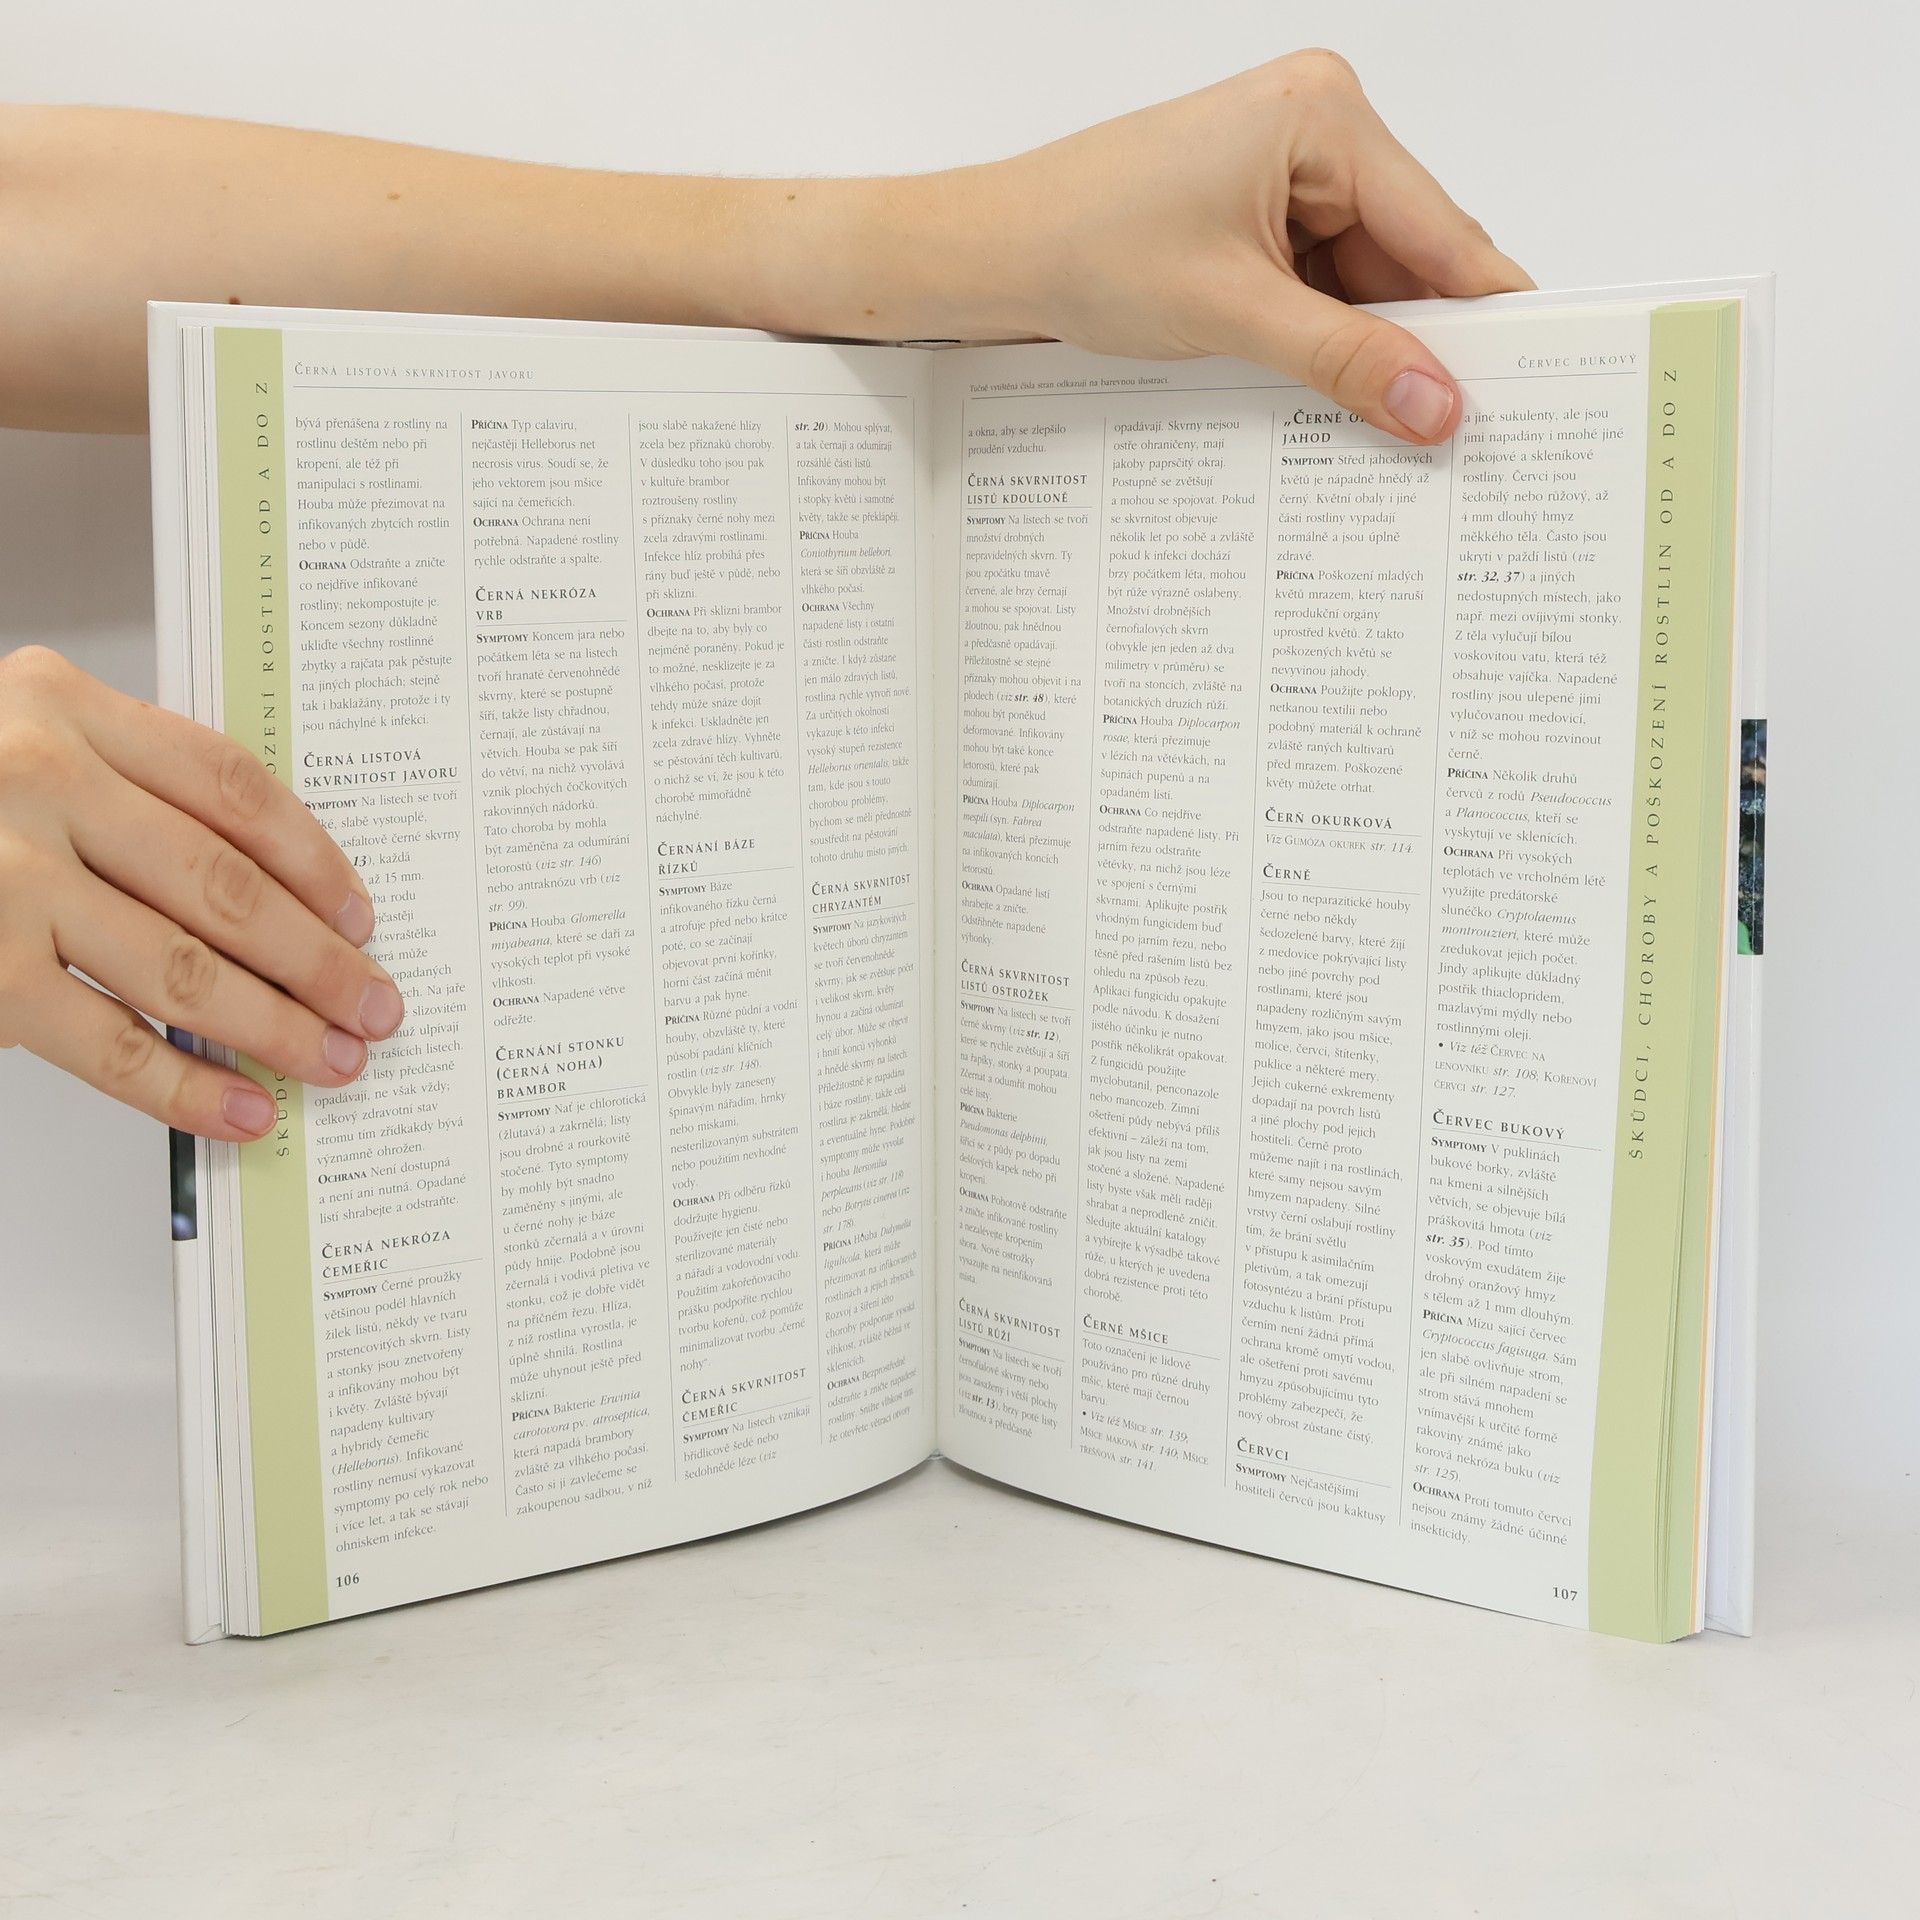 ČERNÁ LISTOVÁ SKVRNITOST JAVORU
bývá přenášena z rostliny na
rostlinu deštěm nebo při
kropení, ale též při
manipulaci s rostlinami.
Houba může přezimovat na
infikovaných zbytcích rostlin
nebo v půdě.
OCHRANA Odstraňte a zničte
co nejdříve infikované
rostliny; nekompostujte je.
Koncem sezony důkladně
ukliďte všechny rostlinné
zbytky a rajčata pak pěstujte
na jiných plochách; stejně
tak i baklažány, protože i ty
jsou náchylné k infekci.
ČERNÁ LISTOVÁ
SKVRNITOST JAVORU
SYMPTOMY Na listech se tvoří
slabě vystouplé,
asfaltově černé skvrny
13), každá
až 15 mm.
rodu
(svraštělka
může
opadaných
Na jaře
slizovitém
ulpívají
rašících listech.
listy předčasně
opadávají, ne však vždy;
celkový zdravotní stav
stromu tím zřídkakdy bývá
významně ohrožen.
OCHRANA Není dostupná
a není ani nutná. Opadané
listí shrabejte a odstraňte.
ČERNÁ NEKRÓZA
ČEMEŘIC
SYMPTOMY Černé proužky
většinou podél hlavních
žilek listů, někdy ve tvaru
prstencovitých skvrn. Listy
a stonky jsou znetvořeny
a infikovány mohou být
i květy. Zvláště bývají
napadeny kultivary
a hybridy čemeřic
(Helleborus). Infikované
rostliny nemusí vykazovat
symptomy po celý rok nebo
i více let, a tak se stávají
ohniskem infekce.
PŘÍČINA Typ calaviru,
nejčastěji Helleborus net
necrosis virus. Soudí se, že
jeho vektorem jsou mšice
sající na čemeřicích.
OCHRANA Ochrana není
potřebná. Napadené rostliny
rychle odstraňte a spalte.
ČERNÁ NEKRÓZA
VRB
SYMPTOMY Koncem jara nebo
počátkem léta se na listech
tvoří hranaté červenohnědé
skvrny, které se postupně
šíří, takže listy chřadnou,
černají, ale zůstávají na
větvích. Houba se pak šíří
do větví, na nichž vyvolává
vznik plochých čočkovitých
rakovinných nádorků.
Tato choroba by mohla
být zaměněna za odumírání
letorostů (viz str. 146)
nebo antraknózu vrb (viz
str. 99).
PŘÍČINA Houba Glomerella
miyabeana, které se daří za
vysokých teplot při vysoké
vlhkosti.
OCHRANA Napadené větve
odřežte.
ČERNÁNÍ STONKU
(ČERNÁ NOHA)
BRAMBOR
SYMPTOMY Nať je chlorotická
(žlutavá) a zakrnělá; listy
jsou drobné a rourkovitě
stočené. Tyto symptomy
by mohly být snadno
zaměněny s jinými, ale
u černé nohy je báze
stonků zčernalá a v úrovni
půdy hnije. Podobně jsou
zčernalá i vodivá pletiva ve
stonku, což je dobře vidět
na příčném řezu. Hlíza,
z níž rostlina vyrostla, je
úplně shnilá. Rostlina
může uhynout ještě před
sklizní.
PŘÍČINA Bakterie Erwinia
carotovora pv. atroseptica,
která napadá brambory
zvláště za vlhkého počasí.
Často si ji zavlečeme se
zakoupenou sadbou, v níž
jsou slabě nakažené hlízy
zcela bez příznaků choroby.
V důsledku toho jsou pak
v kultuře brambor
roztroušeny rostliny
s příznaky černé nohy mezi
zcela zdravými rostlinami.
Infekce hlíz probíhá přes
rány buď ještě v půdě, nebo
při sklizni.
OCHRANA Při sklizni brambor
dbejte na to, aby byly co
nejméně poraněny. Pokud je
to možné, nesklízejte je za
vlhkého počasí, protože
tehdy může snáze dojít
k infekci. Uskladněte jen
zcela zdravé hlízy. Vyhněte
se pěstování těch kultivarů,
o nichž se ví, že jsou k této
chorobě mimořádně
náchylné.
ČERNÁNÍ BÁZE
ŘÍZKŮ
SYMPTOMY Báze
infikovaného řízku černá
a atrofuje před nebo krátce
poté, co se začínají
objevovat první kořínky,
horní část začíná měnit
barvu a pak hyne.
PŘÍČINA Různé půdní a vodní
houby, obzvláště ty, které
působí padání klíčních
rostlin (viz str. 148).
Obvykle byly zaneseny
špinavým nářadím, hrnky
nebo miskami,
nesterilizovaným substrátem
nebo použitím nevhodné
vody.
OCHRANA Při odběru řízků
dodržujte hygienu.
Používejte jen čisté nebo
sterilizované materiály
a nářadí a vodovodní vodu.
Použitím zakořeňovacího
prášku podpoříte rychlou
tvorbu kořenů, což pomůže
minimalizovat tvorbu „černé
nohy“.
ČERNÁ SKVRNITOST
ČEMEŘIC
SYMPTOMY Na listech vznikají
břidlicově šedé nebo
šedohnědé léze (viz
str. 20). Mohou splývat,
a tak černají a odumírají
rozsáhlé části listů.
Infikovány mohou být
i stopky květů i samotné
květy, takže se překlápějí.
PŘÍČINA Houba
Coniothyrium hellebori,
která se šíří obzvláště za
vlhkého počasí.
OCHRANA Všechny
napadené listy i ostatní
části rostlin odstraňte
a zničte. I když zůstane
jen málo zdravých listů,
rostlina rychle vytvoří nové.
Za určitých okolností
vykazuje k této infekci
vysoký stupeň rezistence
Helleborus orientalis, takže
tam, kde jsou s touto
chorobou problémy,
bychom se měli přednostně
soustředit na pěstování
tohoto druhu místo jiných.
ČERNÁ SKVRNITOST
CHRYZANTÉM
SYMPTOMY Na jazykovitých
květech úborů chryzantém
se tvoří červenohnědé
skvrny; jak se zvětšuje počet
i velikost skvrn, květy
hynou a začíná odumírat
celý úbor. Může se objevit
i hnití konců výhonků
a hnědé skvrny na listech.
Příležitostně je napadána
i báze rostliny, takže celá
rostlina je zakrnělá, bledne
a eventuálně hyne. Podobné
symptomy může vyvolat
i houba Itersonilia
perplexans (viz str. 118)
nebo Botrytis cinerea (viz
str. 178).
PŘÍČINA Houba Didymella
ligulicola, která může
přezimovat na infikovaných
rostlinách a jejich zbytcích.
Rozvoj a šíření této
choroby podporuje vysoká
vlhkost, zvláště běžná ve
sklenících.
OCHRANA Bezprostředně
odstraňte a zničte napadené
rostliny. Snižte vlhkost tím,
že otevřete větrací otvory
106
ŠKŮDC
OZENÍ ROSTLIN OD A DO Z
Tučně vytištěná čísla stran odkazují na barevnou ilustraci.
ČERVEC BUKOVÝ
a okna, aby se zlepšilo
proudění vzduchu.
ČERNÁ SKVRNITOST
LISTŮ KDOULONĚ
SYMPTOMY Na listech se tvoří
množství drobných
nepravidelných skvrn. Ty
jsou zpočátku tmavě
červené, ale brzy černají
a mohou se spojovat. Listy
žloutnou, pak hnědnou
a předčasně opadávají.
Příležitostně se stejné
příznaky mohou objevit i na
plodech (viz str. 48), které
mohou být poněkud
deformované. Infikovány
mohou být také konce
letorostů, které pak
odumírají.
PŘÍČINA Houba Diplocarpon
mespili (syn. Fabrea
maculata), která přezimuje
na infikovaných koncích
letorostů.
OCHRANA Opadané listí
shrabejte a zničte.
Odstřihněte napadené
výhonky.
ČERNÁ SKVRNITOST
LISTŮ OSTROŽEK
SYMPTOMY Na listech se tvoří
černé skvrny (viz str. 12),
které se rychle zvětšují a šíří
na řapíky, stonky a poupata.
Zčernat a odumřít mohou
celé listy.
PŘÍČINA Bakterie
Pseudomonas delphinii,
šířící se z půdy po dopadu
dešťových kapek nebo při
kropení.
OCHRANA Pohotově odstraňte
a zničte infikované rostliny
a nezalévejte kropením
shora. Nové ostrožky
vysazujte na neinfikovaná
místa.
ČERNÁ SKVRNITOST
LISTŮ RŮŽÍ
SYMPTOMY Na listech se tvoří
černofialové skvrny nebo
jsou zasaženy i větší plochy
(viz str. 13), brzy poté listy
žloutnou a předčasně
opadávají. Skvrny nejsou
ostře ohraničeny, mají
jakoby paprsčitý okraj.
Postupně se zvětšují
a mohou se spojovat. Pokud
se skvrnitost objevuje
několik let po sobě a zvláště
pokud k infekci dochází
brzy počátkem léta, mohou
být růže výrazně oslabeny.
Množství drobnějších
černofialových skvrn
(obvykle jen jeden až dva
milimetry v průměru) se
tvoří na stoncích, zvláště na
botanických druzích růží.
PŘÍČINA Houba Diplocarpon
rosae, která přezimuje
v lézích na větévkách, na
šupinách pupenů a na
opadaném listí.
OCHRANA Co nejdříve
odstraňte napadené listy. Při
jarním řezu odstraňte
větévky, na nichž jsou léze
ve spojení s černými
skvrnami. Aplikujte postřik
vhodným fungicidem buď
hned po jarním řezu, nebo
těsně před rašením listů bez
ohledu na způsob řezu.
Aplikaci fungicidu opakujte
podle návodu. K dosažení
jistého účinku je nutno
postřik několikrát opakovat.
Z fungicidů použijte
myclobutanil, penconazole
nebo mancozeb. Zimní
ošetření půdy nebývá příliš
efektivní – záleží na tom,
jak jsou listy na zemi
stočené a složené. Napadené
listy byste však měli raději
shrabat a neprodleně zničit.
Sledujte aktuální katalogy
a vybírejte k výsadbě takové
růže, u kterých je uvedena
dobrá rezistence proti této
chorobě.
ČERNÉ MŠICE
Toto označení je lidově
používáno pro různé druhy
mšic, které mají černou
barvu.
• Viz též MŠICE str. 139;
MŠICE MAKOVÁ str. 140; MŠICE
TŘEŠŇOVÁ str. 141.
„ČERNÉ O
JAHOD
SYMPTOMY Střed jahodových
květů je nápadně hnědý až
černý. Květní obaly i jiné
části rostliny vypadají
normálně a jsou úplně
zdravé.
PŘÍČINA Poškození mladých
květů mrazem, který naruší
reprodukční orgány
uprostřed květů. Z takto
poškozených květů se
nevyvinou jahody.
OCHRANA Použijte poklopy,
netkanou textilii nebo
podobný materiál k ochraně
zvláště raných kultivarů
před mrazem. Poškozené
květy můžete otrhat.
ČERŇ OKURKOVÁ
Viz GUMÓZA OKUREK str. 114.
ČERNĚ
Jsou to neparazitické houby
černé nebo někdy
šedozelené barvy, které žijí
z medovice pokrývající listy
nebo jiné povrchy pod
rostlinami, které jsou
napadeny rozličným savým
hmyzem, jako jsou mšice,
molice, červci, štítenky,
puklice a některé mery.
Jejich cukerné exkrementy
dopadají na povrch listů
a jiné plochy pod jejich
hostiteli. Černě proto
můžeme najít i na rostlinách,
které samy nejsou savým
hmyzem napadeny. Silné
vrstvy černí oslabují rostliny
tím, že brání světlu
v přístupu k asimilačním
pletivům, a tak omezují
fotosyntézu a brání přístupu
vzduchu k listům. Proti
černím není žádná přímá
ochrana kromě omytí vodou,
ale ošetření proti savému
hmyzu způsobujícímu tyto
problémy zabezpečí, že
nový obrost zůstane čistý.
ČERVCI
SYMPTOMY Nejčastějšími
hostiteli červců jsou kaktusy
a jiné sukulenty, ale jsou
jimi napadány i mnohé jiné
pokojové a skleníkové
rostliny. Červci jsou
šedobílý nebo růžový, až
4 mm dlouhý hmyz
měkkého těla. Často jsou
ukryti v paždí listů (viz
str. 32, 37) a jiných
nedostupných místech, jako
např. mezi ovíjivými stonky.
Z těla vylučují bílou
voskovitou vatu, která též
obsahuje vajíčka. Napadené
rostliny jsou ulepené jimi
vylučovanou medovicí,
v níž se mohou rozvinout
černě.
PŘÍČINA Několik druhů
červců z rodů Pseudococcus
a Planococcus, kteří se
vyskytují ve sklenících.
OCHRANA Při vysokých
teplotách ve vrcholném létě
využijte predátorské
slunéčko Cryptolaemus
montrouzieri, které může
zredukovat jejich počet.
Jindy aplikujte důkladný
postřik thiaclopridem,
mazlavými mýdly nebo
rostlinnými oleji.
• Viz též ČERVEC NA
LENOVNÍKU str. 108; KOŘENOVÍ
ČERVCI str. 127.
ČERVEC BUKOVÝ
SYMPTOMY V puklinách
bukové borky, zvláště
na kmeni a silnějších
větvích, se objevuje bílá
práškovitá hmota (viz
str. 35). Pod tímto
voskovým exudátem žije
drobný oranžový hmyz
s tělem až 1 mm dlouhým.
PŘÍČINA Mízu sající červec
Cryptococcus fagisuga. Sám
jen slabě ovlivňuje strom,
ale při silném napadení se
strom stává mnohem
vnímavější k určité formě
rakoviny známé jako
korová nekróza buku (viz
str. 125).
OCHRANA Proti tomuto červci
nejsou známy žádné účinné
insekticidy.
107
ŠKŮDCI, CHOROBY A POŠKOZENÍ ROSTLIN OD A DO Z